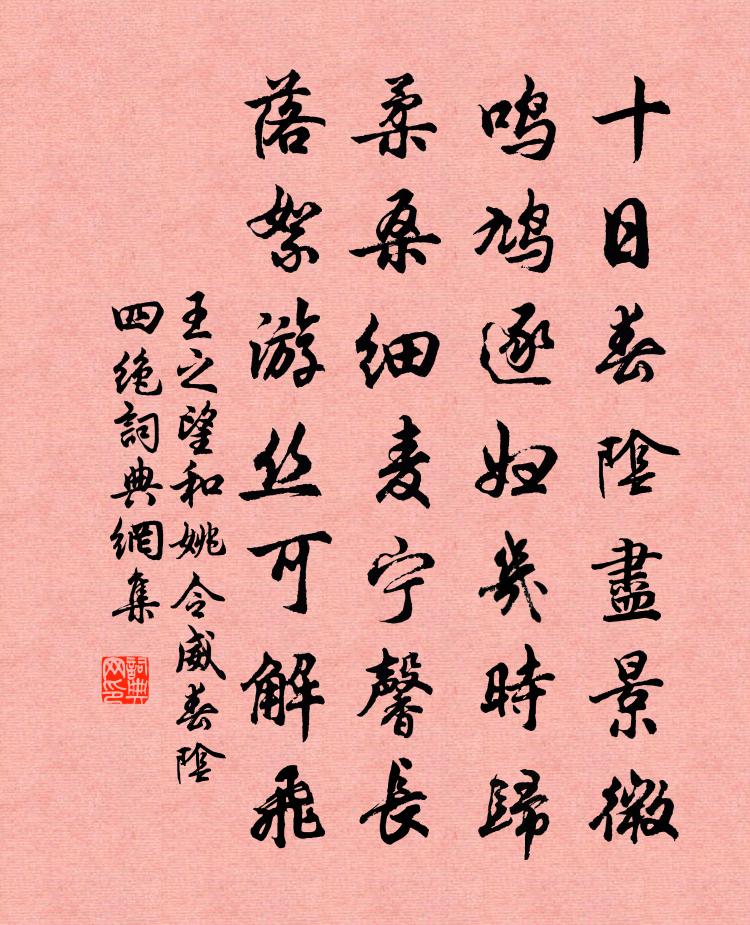 十日春陰盡景微
鳴鳩逐妇幾時歸
柔桑细麦宁馨長
落絮游丝可解飛
王之望和姚令威春陰
四绝詞典網集
詞典网印